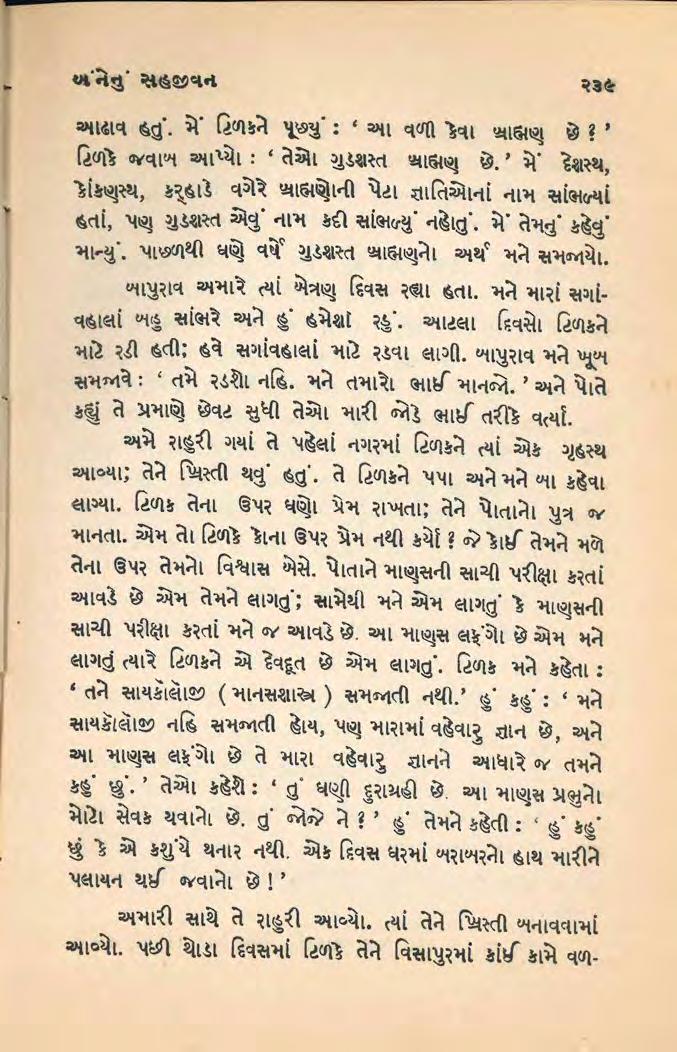 બંનેનું સહજીવન ૨૩૯
આઢાવ હતું. મેં ટિળકને પૂછ્યું : ‘ આ વળી કેવા બ્રાહ્મણ છે ? ’
ટિળકે જવાબ આપ્યો : ‘ તેઓ ગુડશસ્ત બ્રાહ્મણ છે.’ મેં દેશસ્થ,
કોંકણસ્થ, કર્‌હાડે વગેરે બ્રાહ્મણોની પેટા જ્ઞાતિઓનાં નામ સાંભળ્યાં
હતાં, પણ ગુડશસ્ત એવું નામ કદી સાંભળ્યું નહોતું. મેં તેમનું કહેવું
માન્યું. પાછળથી ઘણે વર્ષે ગુડશસ્ત બ્રાહ્મણનો અર્થ મને સમજાયો.
બાપુરાવ અમારે ત્યાં બેત્રણ દિવસ રહ્યા હતા. મને મારાં સગાં-
વહાલાં બહુ સાંભરે અને હું હમેશાં રડું. આટલા દિવસો ટિળકને
માટે રડી હતી; હવે સગાંવહાલાં માટે રડવા લાગી. બાપુરાવ મને ખૂબ
સમજાવે : ‘ તમે રડશો નહિ. મને તમારો ભાઈ માનજો. ’ અને પોતે
કહ્યું તે પ્રમાણે છેવટ સુધી તેઓ મારી જોડે ભાઈ તરીકે વર્ત્યા.
અમે રાહુરી ગયાં તે પહેલાં નગરમાં ટિળકને ત્યાં એક ગૃહસ્થ
આવ્યા; તેને ખ્રિસ્તી થવું હતું. તે ટિળકને પપા અને મને બા કહેવા
લાગ્યા. ટિળક તેના ઉપર ઘણો પ્રેમ રાખતા; તેને પોતાનો પુત્ર જ
માનતા. એમ તો ટિળકે કોના ઉપર પ્રેમ નથી કર્યો ? જે કોઈ તેમને મળે
તેના ઉપર તેમનો વિશ્વાસ બેસે. પોતાને માણસની સાચી પરીક્ષા કરતાં
આવડે છે એમ તેમને લાગતું; સામેથી મને એમ લાગતું કે માણસની
સાચી પરીક્ષા કરતાં મને જ આવડે છે. આ માણસ લફંગો છે એમ મને
લાગતું ત્યારે ટિળકને એ દેવદૂત છે એમ લાગતું. ટિળક મને કહેતા :
‘ તને સાયકૉલૉજી ( માનસશાસ્ત્ર ) સમજાતી નથી.’ હું કહું : ‘ મને
સાયકૉલૉજી નહિ સમજાતી હોય, પણ મારામાં વહેવારુ જ્ઞાન છે, અને
આ માણસ લફંગો છે તે મારા વહેવારુ જ્ઞાનને આધારે જ તમને
કહું છું. ’ તેઓ કહેશે : ‘ તું ઘણી દુરાગ્રહી છે. આ માણસ પ્રભુનો
મોટો સેવક થવાનો છે. તું જોજે ને ? ’ હું તેમને કહેતી : ‘ હું કહું
છું કે એ કશુંયે થનાર નથી. એક દિવસ ઘરમાં બરાબરનો હાથ મારીને
પલાયન થઈ જવાનો છે ! ’
અમારી સાથે તે રાહુરી આવ્યો. ત્યાં તેને ખ્રિસ્તી બનાવવામાં
આવ્યો. પછી થોડા દિવસમાં ટિળકે તેને વિસાપુરમાં કાંઈ કામે વળ-